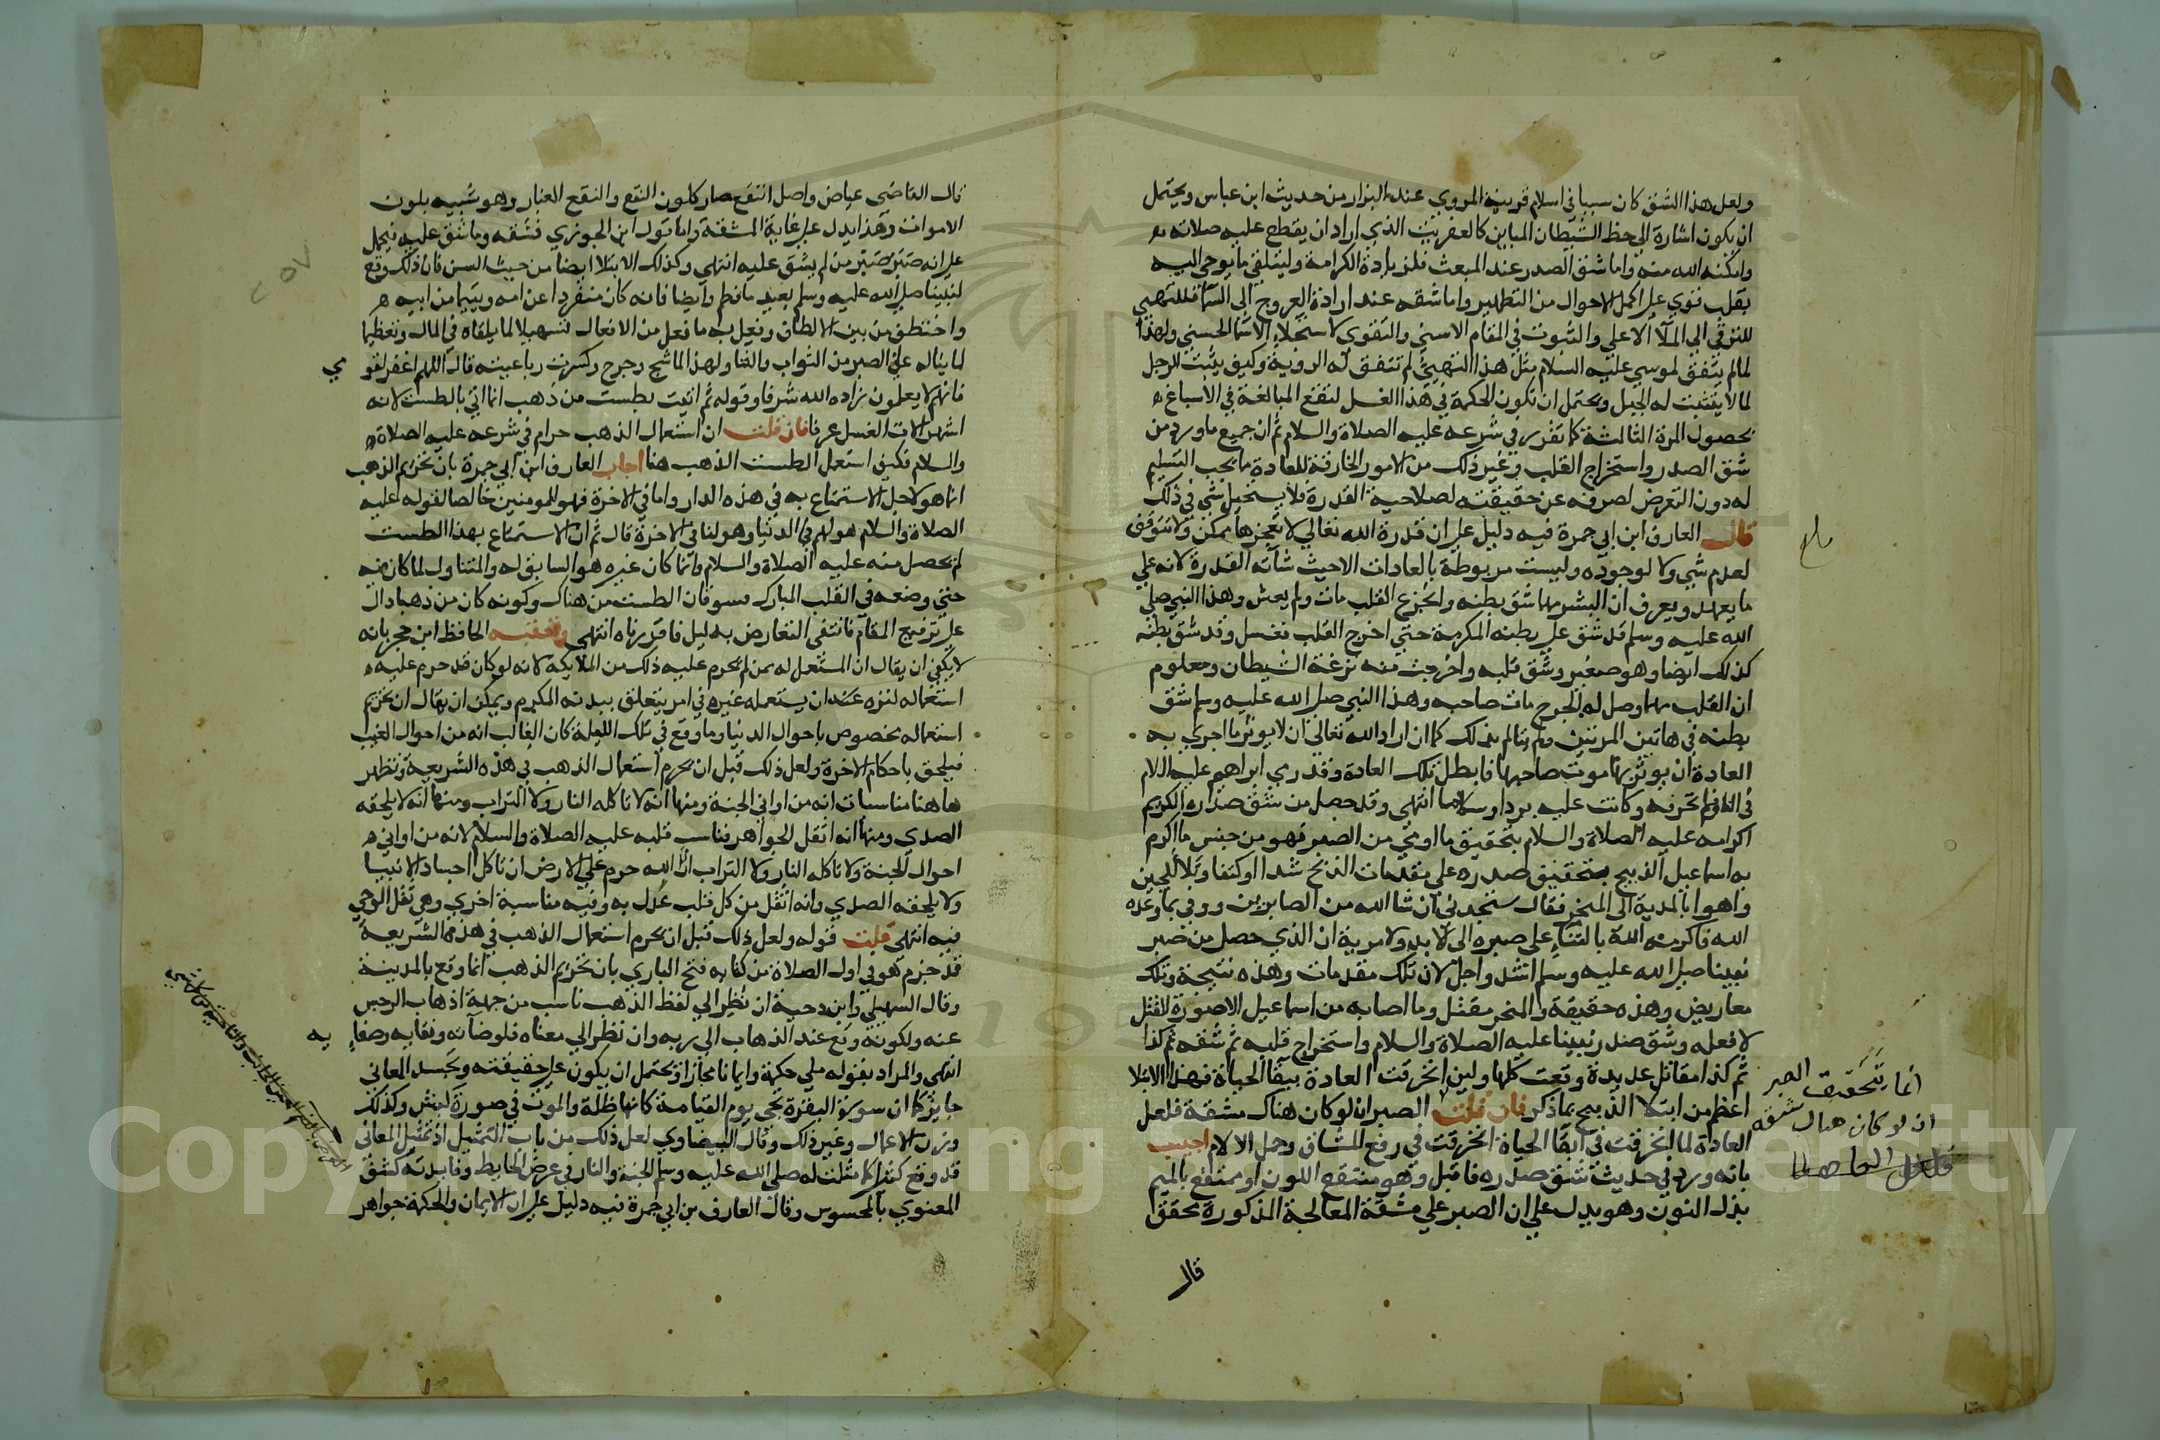 ولعل هذا الشق كان سببا في اسلام قرينه المروي عند البزار من حديث ابن عباس ويحتمل
ان يكون اشارة الي حظ الشيطان المباين كالعفريت الذي اراد ان يقطع عليه صلاته
وامكنه الله منه واما شق الصدر عند المبعث فلزيادة الكرامة وليتلقي ما يوحي اليه
بقلب قوي علي اكمل الاحوال من التطهير واما شقه عند ارادة العروج الي السما فللتهيي
للترقي الي الملا الاعلي والثبوت في المقام الاسني والتقوي لاستجلاء الاسما الحسني ولهذا
لما لم يتفق لموسي عليه السلام مثل هذا التهيي لم تتفق له الروية وكيف يثبت الرجل
لما لا يثبت له الجبل ويحتمل ان تكون الحكمة في هذا الغسل لتقع المبالغة في الاسباغ
بحصول المرة الثالثة كما تقرر في شرعه عليه الصلاة والسلام ثم ان جميع ما ورد من
شق الصدر واستخراج القلب وغير ذلك من الامور الخارقة للعادة مما يجب التسليم
له دون التعرض لصرفه عن حقيقته لصلاحية القدرة فلا يستحيل شي في ذلك
قال العارف ابن ابي جمرة فيه دليل علي ان قدرة الله تعالي لا يعجزها ممكن ولا تتوقف
لعدم شي ولا لوجوده وليست مربوطة بالعادات الا حيث شاته القدرة لانه علي
ما يعهد ويعرف ان البشر مهما شق بطنه وانجزع القلب مات ولم يعش وهذا النبي صلي
الله عليه وسلم قد شق علي بطنه المكرمة حتي اخرج القلب فغسل وقد شق بطنه
كذلك ايضا وهو صغير وشق قلبه واخرجت منه نزغة الشيطان ومعلوم
ان القلب مهما وصل له الجرح مات صاحبه وهذا النبي صلي الله عليه وسلم شق
بطنه في هاتين المرتين ولم يتالم بذلك لما ان اراد الله تعالي ان لا يوثر ما اجري به
العادة ان يوثر بها موت صاحبها فابطل تلك العادة وقد رمي ابراهيم عليه السلام
في النار فلم تحرقه وكانت عليه بردا وسلاما انتهي وقد حصل من شق صدره الكريم
اكرامه عليه الصلاة والسلام بتحقيق ما اوتي من الصبر فهو من جنس ما اكرم
به اسماعيل الذبيح بتحقيق صدره علي مقدمات الذبح شدا او كتفا وتلا للجبين
واهوا بالمدية الي المنحر فقال ستجدني ان شا الله من الصابرين ووفي بما وعده
الله فاكرمه الله بالثناء علي صبره الي الابد ولا مرية ان الذي حصل من صبر
نبينا صلي الله عليه وسلم اشد واجل لان تلك مقدمات وهذه نتيجة وتلك
معاريض وهذه حقيقة والمنحر مقتل وما اصابه من اسماعيل الا صورة القتل
لا فعله وشق صدر نبينا عليه الصلاة والسلام واستخراج قلبه ثم شقه ثم كذا
ثم كذا مقاتل عديدة وقعت كلها ولين انخرقت العادة ببقا الحياة فهذا الابتلا
اعظم من ابتلا الذبيح بما ذكر فان قلت الصبر ان لو كان هناك مشقة فلعل
العادة لما انخرقت في ابقا الحياة انخرقت في رفع المشاق وحمل الالام اجيب
بانه ورد في حديث شق صدره فاقبل وهو منتقع اللون او ممتقع بالميم
بدل النون وهو يدل علي ان الصبر علي مشقة المعالجة المذكورة محقق
قال
انما يتحقق الصبر
ان لو كان هناك مشقة
قال القاضي عياض واصل انتقع صار كلون النقع والنقع الغبار وهو شبيه بلون
الاموات وهذا يدل علي غاية المشقة واما قول ابن الجوزي فشقه وما شق عليه فيحمل
علي انه صبر صبر من لم يشق عليه انتهي وكذلك الابتلا ايضا من حيث السن فان ذلك وقع
لنبينا صلي الله عليه وسلم بعيد ما فطم وايضا فانه كان منفردا عن امه ويتيما من ابيه
واختطف من بين الاطفال وفعل به ما فعل من الافعال تسهيلا لما يلقاه في المال وتعظيما
لما يناله علي الصبر من الثواب والثنا ولهذا لما شج وجرح وكسرت رباعيته قال اللهم اغفر لقومي
فانهم لا يعلمون زاده الله شرفا وقوله ثم اتيت بطست من ذهب انما اتي بالطست لانه
اشهر الات الغسل عرفا فان قلت ان استعمال الذهب حرام في شرعه عليه الصلاة
والسلام فكيف استعمل الطست الذهب هنا اجاب العارف ابن ابي جمرة بان تحريم الذهب
انما هو لاجل الاستمتاع به في هذه الدار واما في الاخرة فهو للمومنين خالصا لقوله عليه
الصلاة والسلام هو لهم في الدنيا وهو لنا في الاخرة قال ثم ان الاستمتاع بهذا الطست
لم يحصل منه عليه الصلاة والسلام وانما كان غيره هو السابق له والمتناول لما كان فيه
حتي وضعه في القلب المبارك فسوقان الطست من هناك وكونه كان من ذهب دال
علي ترفيع المقام فانتفي التعارض بدليل ما قررناه انتهي وتعقبه الحافظ ابن حجر بانه
لا يكفي ان يقال ان المستعمل له ممن لم يحرم عليه ذلك من الملايكة لانه لو كان قد حرم عليه
استعماله لنزه عنه ان يستعمله غيره في امر يتعلق ببدنه المكرم ويمكن ان يقال ان تحريم
استعماله مخصوص باحوال الدنيا وما وقع في تلك الليلة كان الغالب انه من احوال الغيب
فيلحق باحكام الاخرة ولعل ذلك قبل ان يحرم استعمال الذهب في هذه الشريعة ونظهر
هاهنا مناسبات انه من اواني الجنة ومنها انه لا تاكله النار ولا التراب ومنها انه لا يلحقه
الصدي ومنها انه اثقل الجواهر فناسب قلبه عليه الصلاة والسلام لانه من اواني
احوال الجنة ولا تاكله النار ولا التراب ان الله حرم علي الارض ان تاكل اجساد الانبيا
ولا يلحقه الصدي وانه اثقل من كل قلب عدل به وفيه مناسبة اخري وهي ثقل الوحي
فيه انتهي قلت قوله ولعل ذلك قبل ان يحرم استعمال الذهب في هذه الشريعة
قد جزم هو في اول الصلاة من كتابه فتح الباري بان تحريم الذهب انما وقع بالمدينة
وقال السهيلي وابن دحية ان نظر الي لفظ الذهب ناسب من جهة اذهاب الرجس
عنه ولكونه وقع عند الذهاب الي ربه وان نظر الي معناه فلوضاته ونقايه وصفايه
انتهي والمراد بقوله ملي حكمة وايمانا مجازا ويحتمل ان يكون علي حقيقته وتجسد المعاني
جايز كما ان سورة البقرة تجي يوم القيامة كانها ظلة والموت في صورة كبش وكذلك
وزن الاعمال وغير ذلك وقال البيضاوي لعل ذلك من باب التمثيل اذ تمثيل المعاني
قد وقع كثيرا كما مثلت له صلي الله عليه وسلم الجنة والنار في عرض الحايط وفايدته كشف
المعنوي بالمحسوس وقال العارف بن ابي جمرة فيه دليل علي ان الايمان والحكمة جواهر